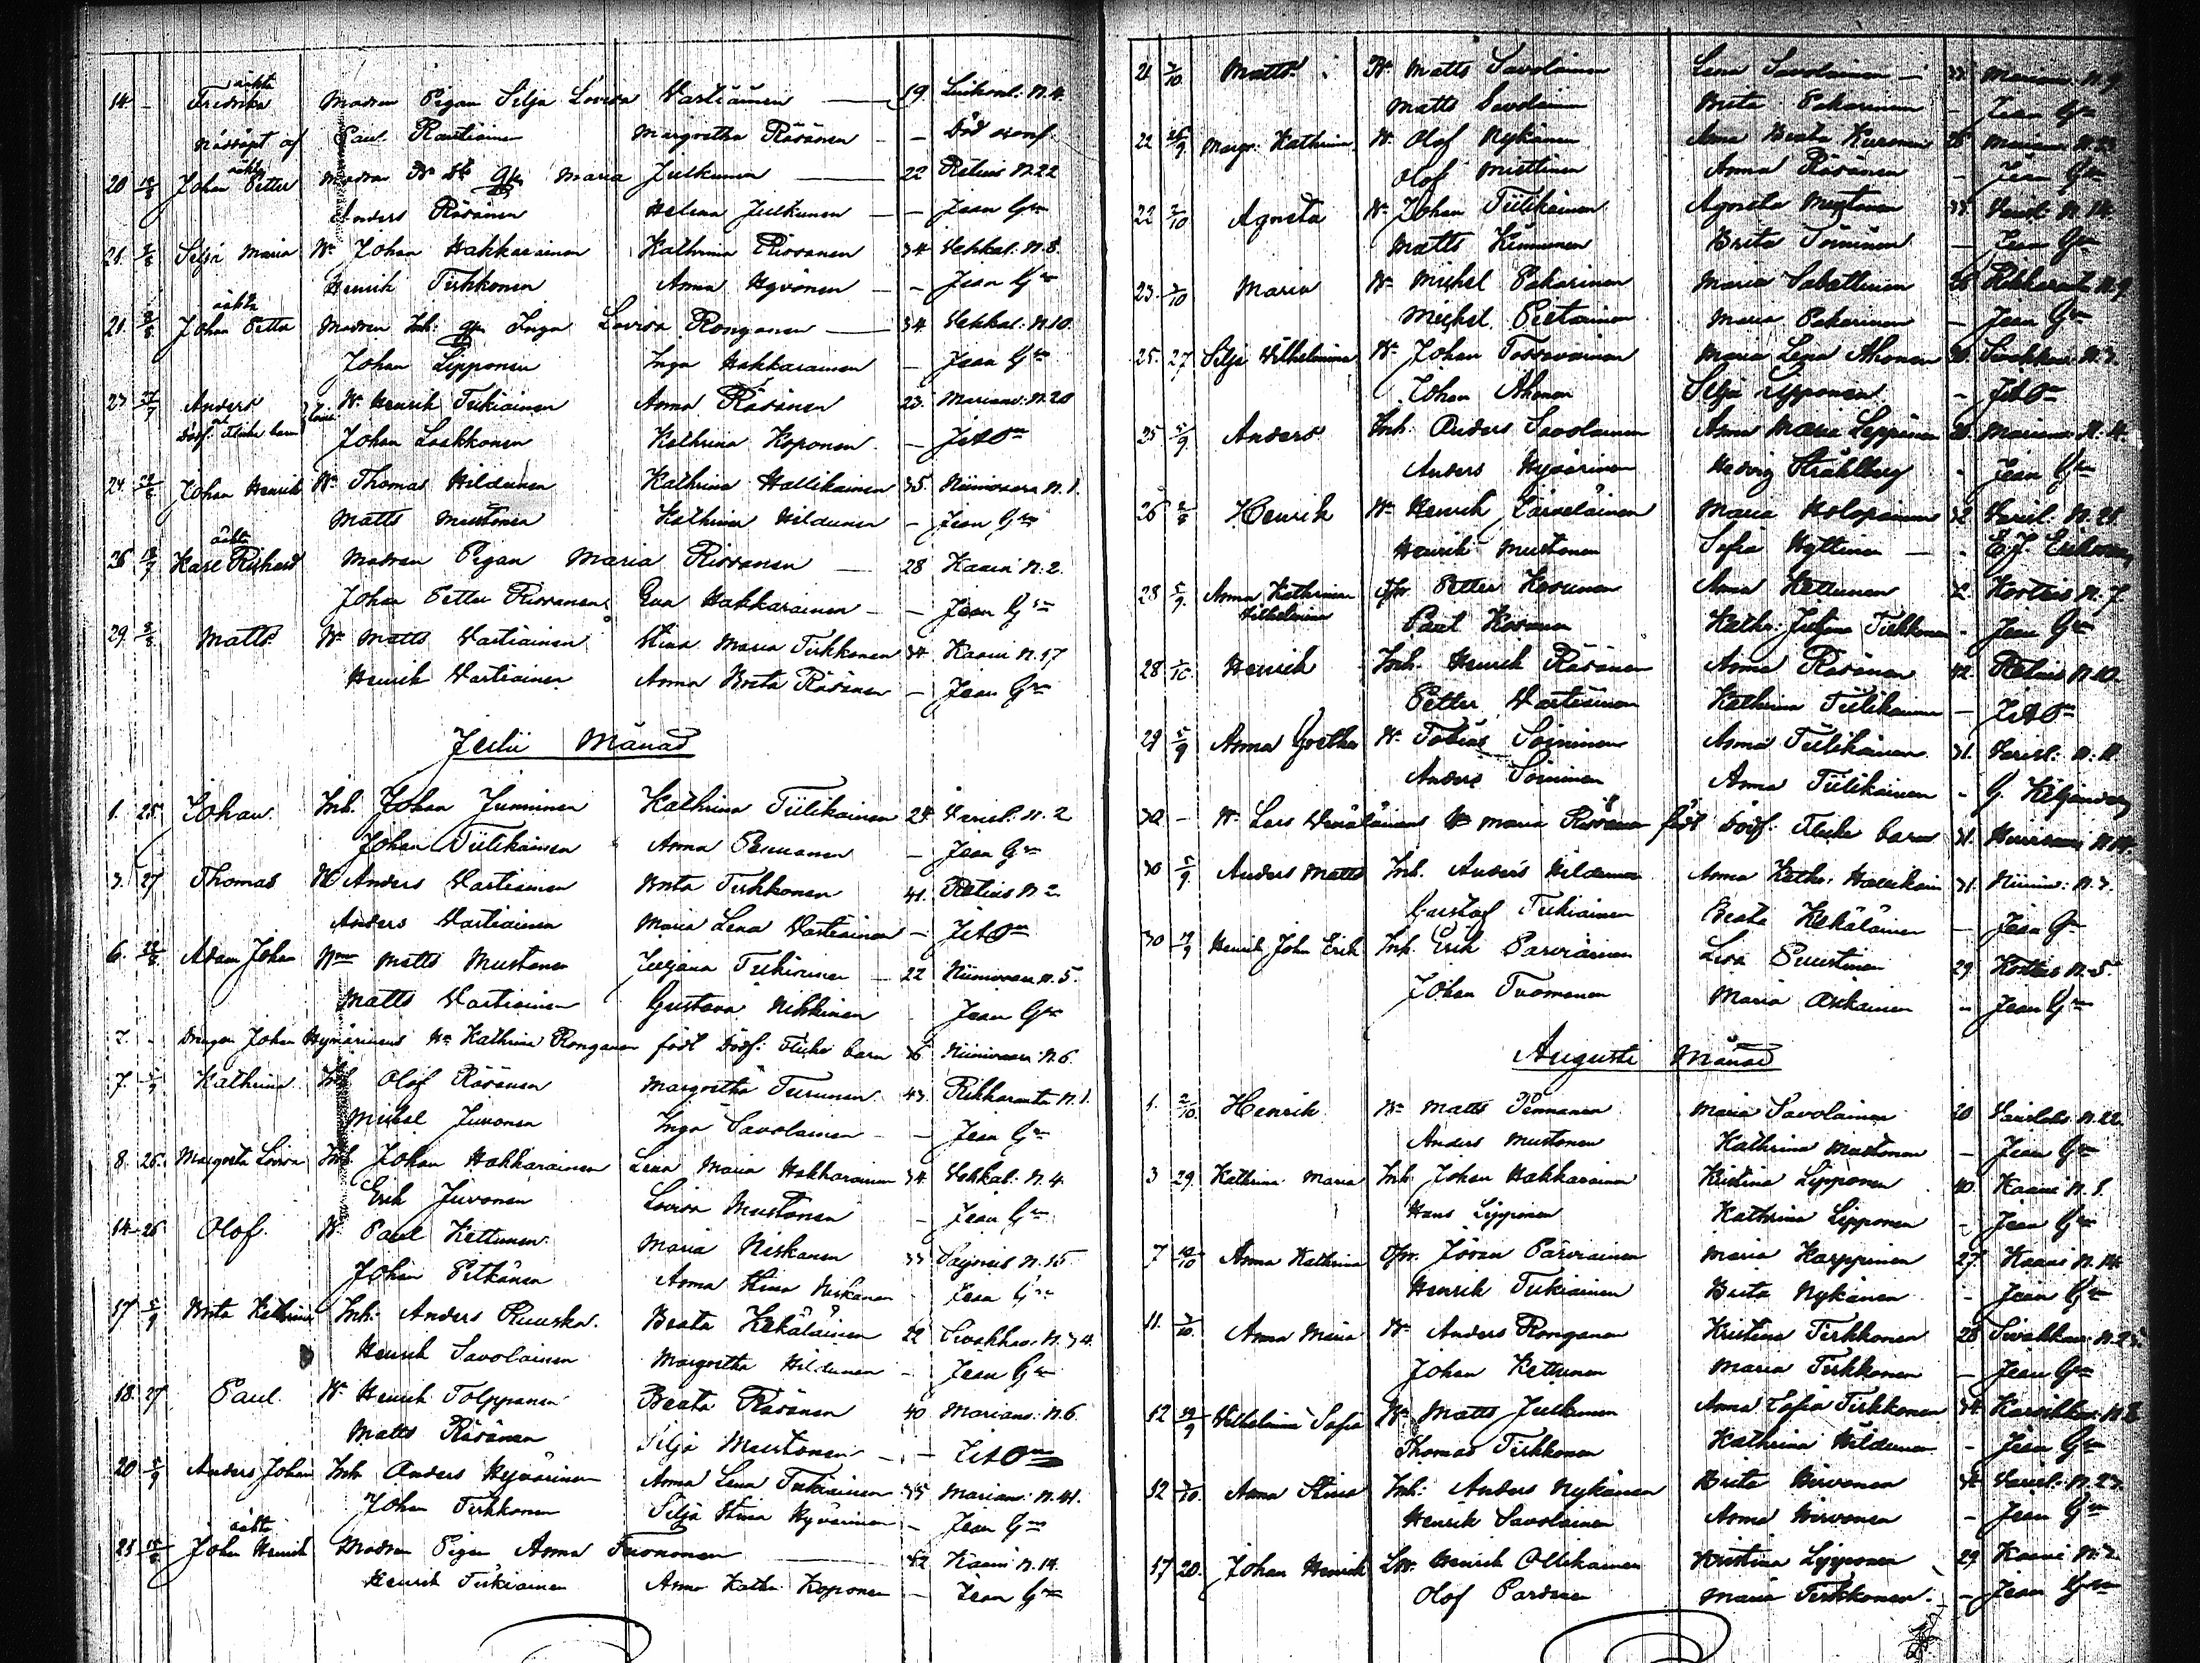 14. - oäkta Fredrika Modren Pigan Silja Lovisa Vartiainen 19
nöddöpt af Paul Rautiainen Margretha Räsänen -
20 oäkta Johan Petter Modren Maria Julkunen 22 Rutius N. 22
Anders Räsänen Helena Julkunen - Jean Gm
21. Silja Maria Bn Johan Hakkarainen Kathrina Rissanen 34 Vehkal: N. 8.
Henrik Tirkkonen Anna Hyvönen - Jean Gm
21. oäkta Johan Petter Modren Inh: Inga Lovisa Ronganen 34 Vehkal: N. 10
Johan Lipponen Inga Hakkarainen - Jean Gm
23 27/7 Anders Bn Henrik Tukiainen Anna Räsänen 23. Marianv: N. 20
dödf. flicke barn Johan Laakkonen Kathrina Koponen -
24. Johan Henrik Bn Thomas Hildunen Kathrina Hallikainen 35. Niinivaara N. 1.
Matts Mustonen Kathrina Hildunen - Jean Gm
26 oäkta Karl Richard Modren Pigan Maria Rissanen 28 Kaavi N. 2.
Johan Petter Rissanen Eva Hakkarainen - Jean Gm
29. Matts Bn Matts Vartiainen Stina Maria Tirkkonen 34 Kaavi N. 17
Henrik Vartiainen Anna Brita Räsänen - Jean Gm
Julii Månad
1. 25 Johan Inh. Johan Junninen Kathrina Tiilikainen 24 Varisl: N. 2
Johan Tiilikainen Anna Pennanen - Jean Gm
3. 27 Thomas Bn Anders Vartiainen Brita Tirkkonen 41. Rutius N. 2.
Anders Vartiainen Maria Lena Vartiainen -
6. Adam Johan Matts Mustonen Juljana Tukiainen 22 Niinivaara N. 5.
Matts Vartiainen Gustava Nikkinen Jean Gm
7. - Drängen Johan Hyvärinens Kathrina Ronganen födt dödf: flicke barn 36 Niinivaara N. 6.
7. Kathrina Inh Olof Räsänen Margretha Turunen 43. Rikkaranta N. 1.
Michel Juvonen Inga Savolainen - Jean Gm
8. 26. Margreta Lovisa Inh. Johan Hakkarainen Lena Maria Hakkarainen 34 Vehkal: N. 4.
Erik Juvonen Lovisa Mustonen - Jean Gm
14. 26 Olof. Bn Paul Kettunen Maria Niskanen 33 N. 15
Johan Pitkänen Anna Stina Niskanen - Jean Gm
17 5/9 Brita Kathrina Inh: Anders Ruuska. Beata Kekäläinen 22 Sivakkav. N. 34
Henrik Savolainen Margretha Hildunen - Jean Gm
18. 27 Paul. Bn Henrik Tolppanen Beata Räsänen 40 Marianv: N. 6.
Matts Räsänen Silja Mustonen -
20 5/9 Anders Johan Inh Anders Hyvärinen Anna Lena Tukiainen 35 Marianv: N. 41.
Johan Tirkkonen Silja Stina Hyvärinen - Jean Gm
21 oäkta Johan Henrik Modren Pigan Anna Tuononen Kaavi N. 14.
Henrik Tukiainen Anna Kathr. Koponen - Jean Gm
21 7/10 Matts. Bn Matts Savolainen Lena Savolainen 33. Marianv. N. 9
Matts Savolainen Brita Pakarinen - Jean Gm
22 26/9 Margr: Kathrina Bn Olof Nykänen Anna Beata Kuronen 26 Marianv
Olof Miettinen Anna Räsänen - Jean Gm
22 7/10 Agneta Bn Johan Tiilikainen Agneta Mustonen 33 Varisl: N. 14.
Matts Kinnunen Brita Soininen - Jean Gm
23. 7/10 Maria Bn Michel Pakarinen Maria Sabattinen 26 Rikkaranta N. 9
Michel Pietarinen Maria Pakarinen - Jean Gm
25. 27 Silja Wilhelmina Bn Johan Tossavainen Maria Lena Ahonen Sivakkav. N. 3.
Johan Ahonen Silja Lipponen -
25 5/9 Anders Inh. Anders Savolainen Anna Maria Leppänen Marianv. N. 4.
Anders Hyvärinen Hedvig Ståhlberg - Jean Gm
26 Henrik Bn Henrik Kärveläinen Maria Holopainen 32 Varisl: N. 21.
Henrik Mustonen Sofia Hyttinen -
28 5/9. Anna Kathrina Wilhelmina Petter Kosunen Anna Kettunen Kortteis N. 7
Paul Kosunen Kathr: Juljana Tirkkonen - Jean Gm
28 1/10. Henrik Inh. Henrik Räsänen Anna Räsänen 42. Rutius N. 10
Petter Vartiainen Kathrina Tiilikainen -
29 5/9 Anna Gretha Bn Tobias Soininen Anna Tiilikainen 31. Varisl: N. 11
Anders Soininen Anna Tiilikainen - G. Kiljander
30 - Bn Lars Väisäläinens Maria Rissanen födt dödf: flicke barn 31.
30 5/9. Anders Matts Inh. Anders Hildunen Anna Kathr: Hallikain 31. Niiniv: N. 3.
Gustaf Tukiainen Beata Kekäläinen - Jean Gm
30 Henrik Johan Erik Inh. Erik Parviainen Lisa Puustinen 29. Kortteis N. 5.
Johan Tuomonen Maria Asikainen - Jean Gm
Augusti Månad
1. 2/10. Henrik Bn Matts Pennanen Maria Savolainen 20 Varislaks N. 22.
Anders Mustonen Kathrina Mustonen - Jean Gm
3 29. Kathrina Maria Inh Johan Hakkarainen Kristina Lipponen 40. Kaavi N. 1.
Hans Lipponen Kathrina Lipponen - Jean Gm
7 Anna Kathrina Jöran Parviainen Maria Karppinen 27. Kaavi N. 14.
Henrik Tukiainen Brita Nykänen - Jean Gm
11. 7/10. Anna Maria Bn Anders Ronganen Kristina Tirkkonen 28 Sivakkav. N. 25.
Johan Kettunen Maria Tirkkonen - Jean Gm
12 19/9 Wilhelmina Sofia Bn Matts Julkunen Anna Sofia Tirkkonen 34.
Thomas Tirkkonen Kathrina Hildunen - Jean Gm
12 7/10. Anna Stina Inh: Anders Nykänen Brita Hirvonen Varisl: N. 23.
Henrik Savolainen Anna Hirvonen - Jean Gm
17 20. Johan Henrik Henrik Ollikainen Kristina Lipponen 29. Kaavi N. 2.
Olof Pardinen Maria Tirkkonen. - Jean Gm